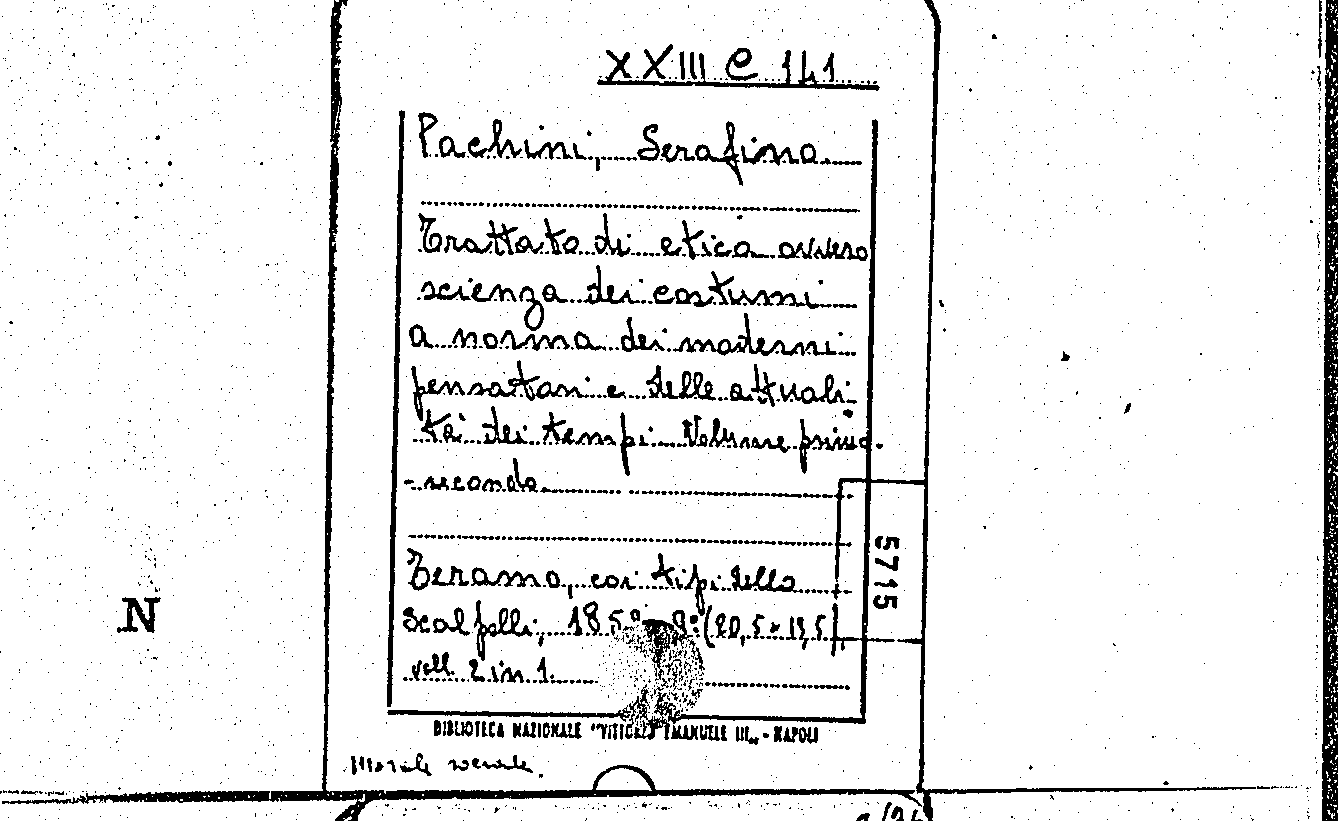 XXIII e 141
Pachini, Serafino
Trattato di etica ovvero
scienza dei costumi
a norma dei moderni
pensatori e delle attuali-
tà dei tempi Volume primo.
- secondo
Teramo, coi tipi dello
Scalpelli, 8° (20,5 x 13,5)
voll. 2 in 1.
5715
N
BIBLIOTECA NAZIONALE "VITTORIO EMANUELE III" - NAPOLI
Morale sociale.